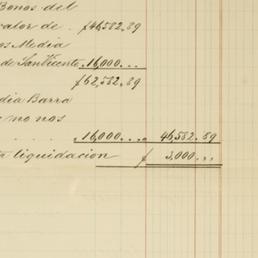 Bonos del
valor de . $46,582.89
os Media
de San Vicente 16,000...
$62,582.89
dia Barra
no nos
. . . . . 16,000... 46,582.89
liquidacion $ 3,000...